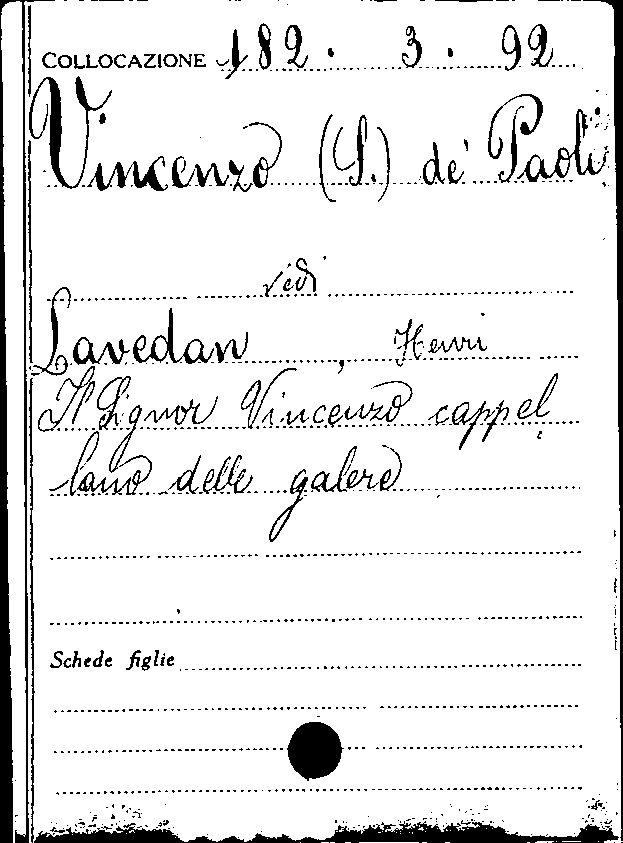 COLLOCAZIONE 182. 3. 92
Vincenzo (S.) de' Paoli
Vedi
Lavedan, Henri
Il Signor Vincenzo cappel
lano delle galere
Schede figlie